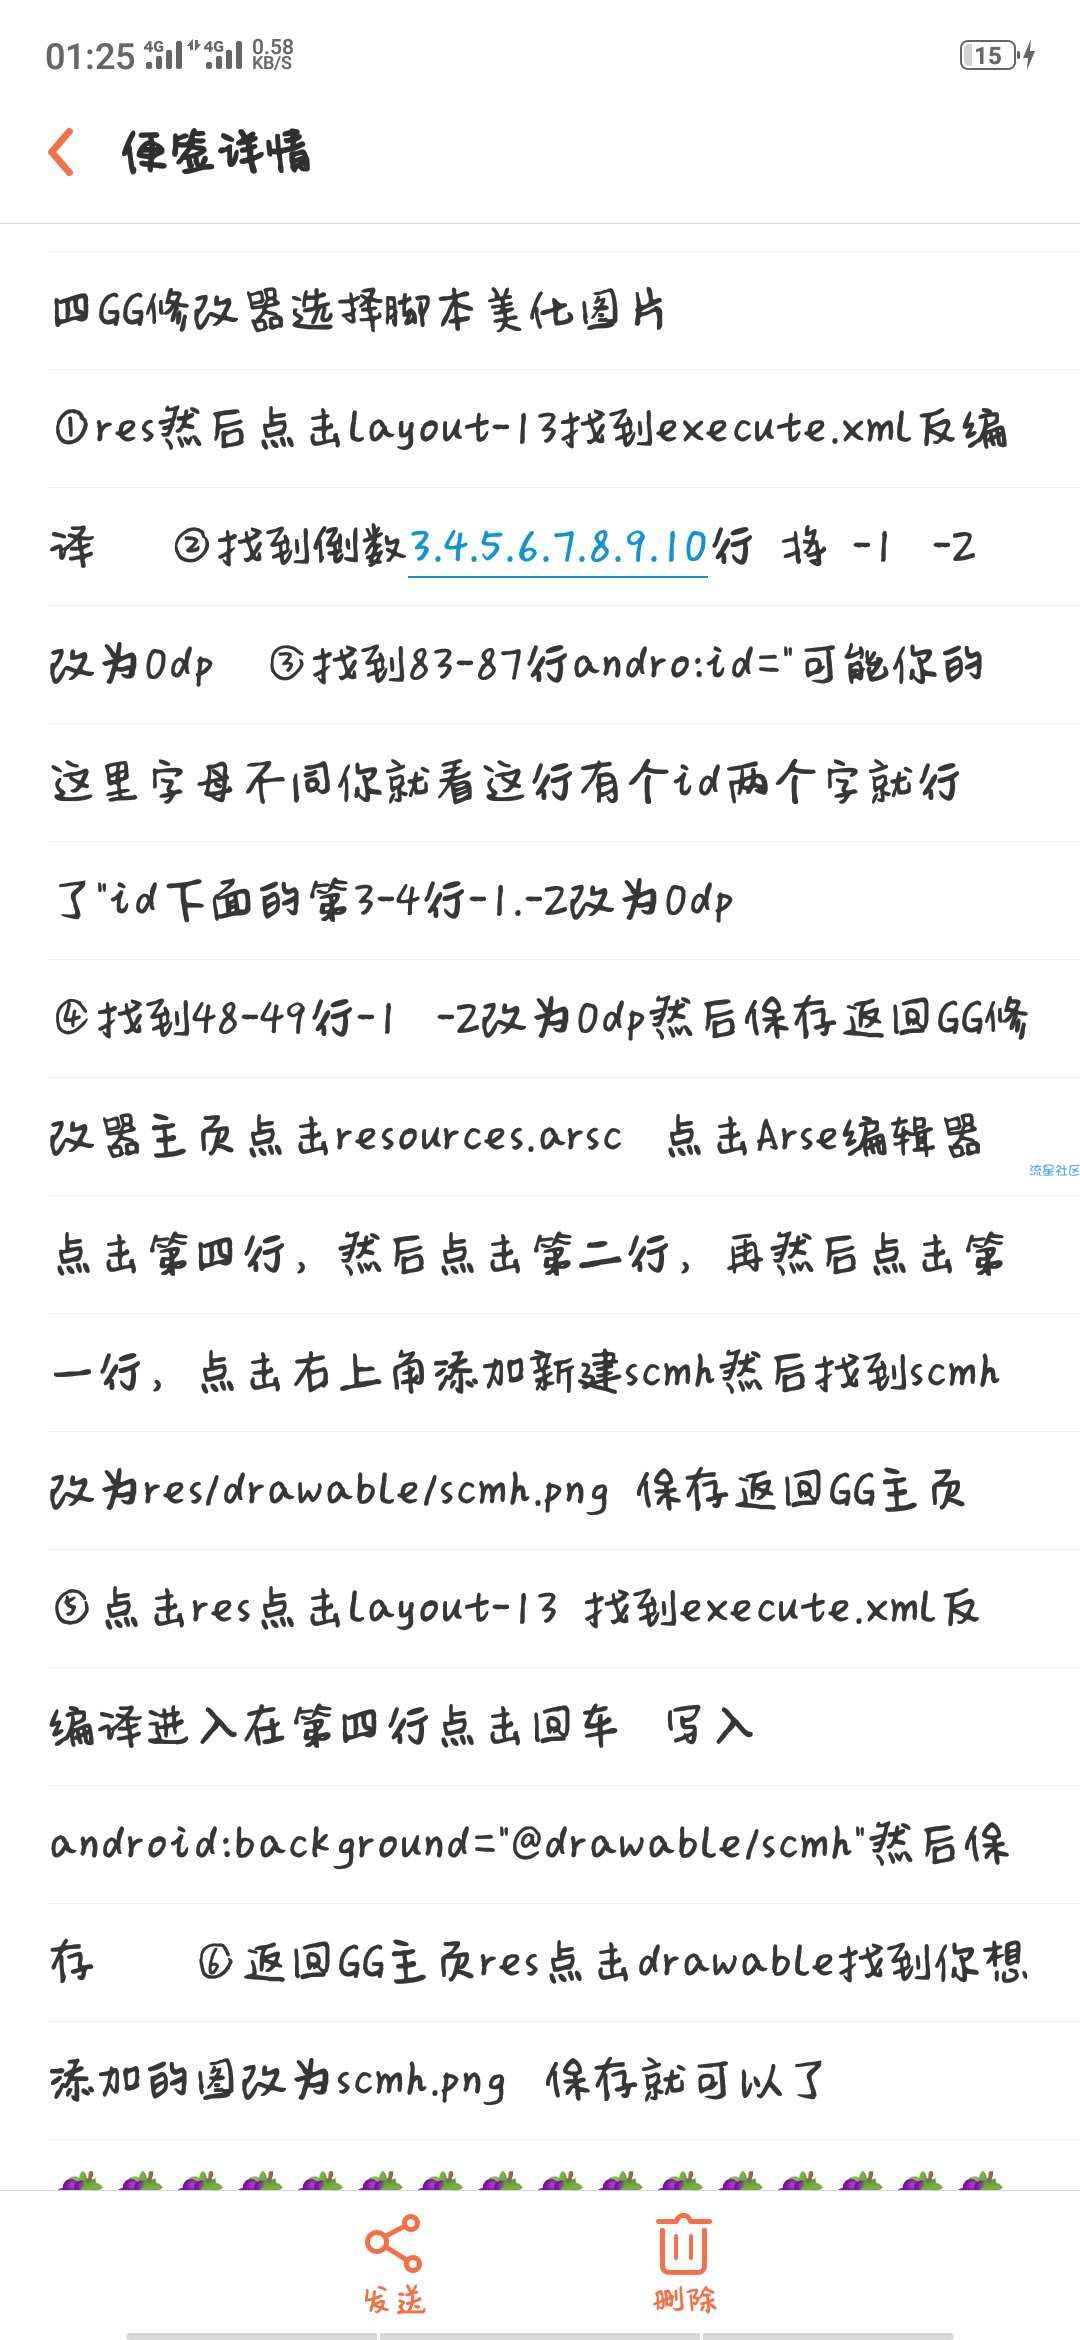 01:25 4G 4G 0.58 KB/S 15
便签详情
四GG修改器选择脚本美化图片
①res然后点击layout-13找到execute.xml反编
译 ②找到倒数3.4.5.6.7.8.9.10行 将 -1 -2
改为0dp ③找到83-87行andro:id="可能你的
这里字母不同你就看这行有个id两个字就行
了"id下面的第3-4行-1.-2改为0dp
④找到48-49行-1 -2改为0dp然后保存返回GG修
改器主页点击resources.arsc 点击Arse编辑器
流星社区
点击第四行，然后点击第二行，再然后点击第
一行，点击右上角添加新建scmh然后找到scmh
改为res/drawable/scmh.png 保存返回GG主页
⑤点击res点击layout-13 找到execute.xml反
编译进入在第四行点击回车 写入
android:background="@drawable/scmh"然后保
存 ⑥返回GG主页res点击drawable找到你想
添加的图改为scmh.png 保存就可以了
发送 删除